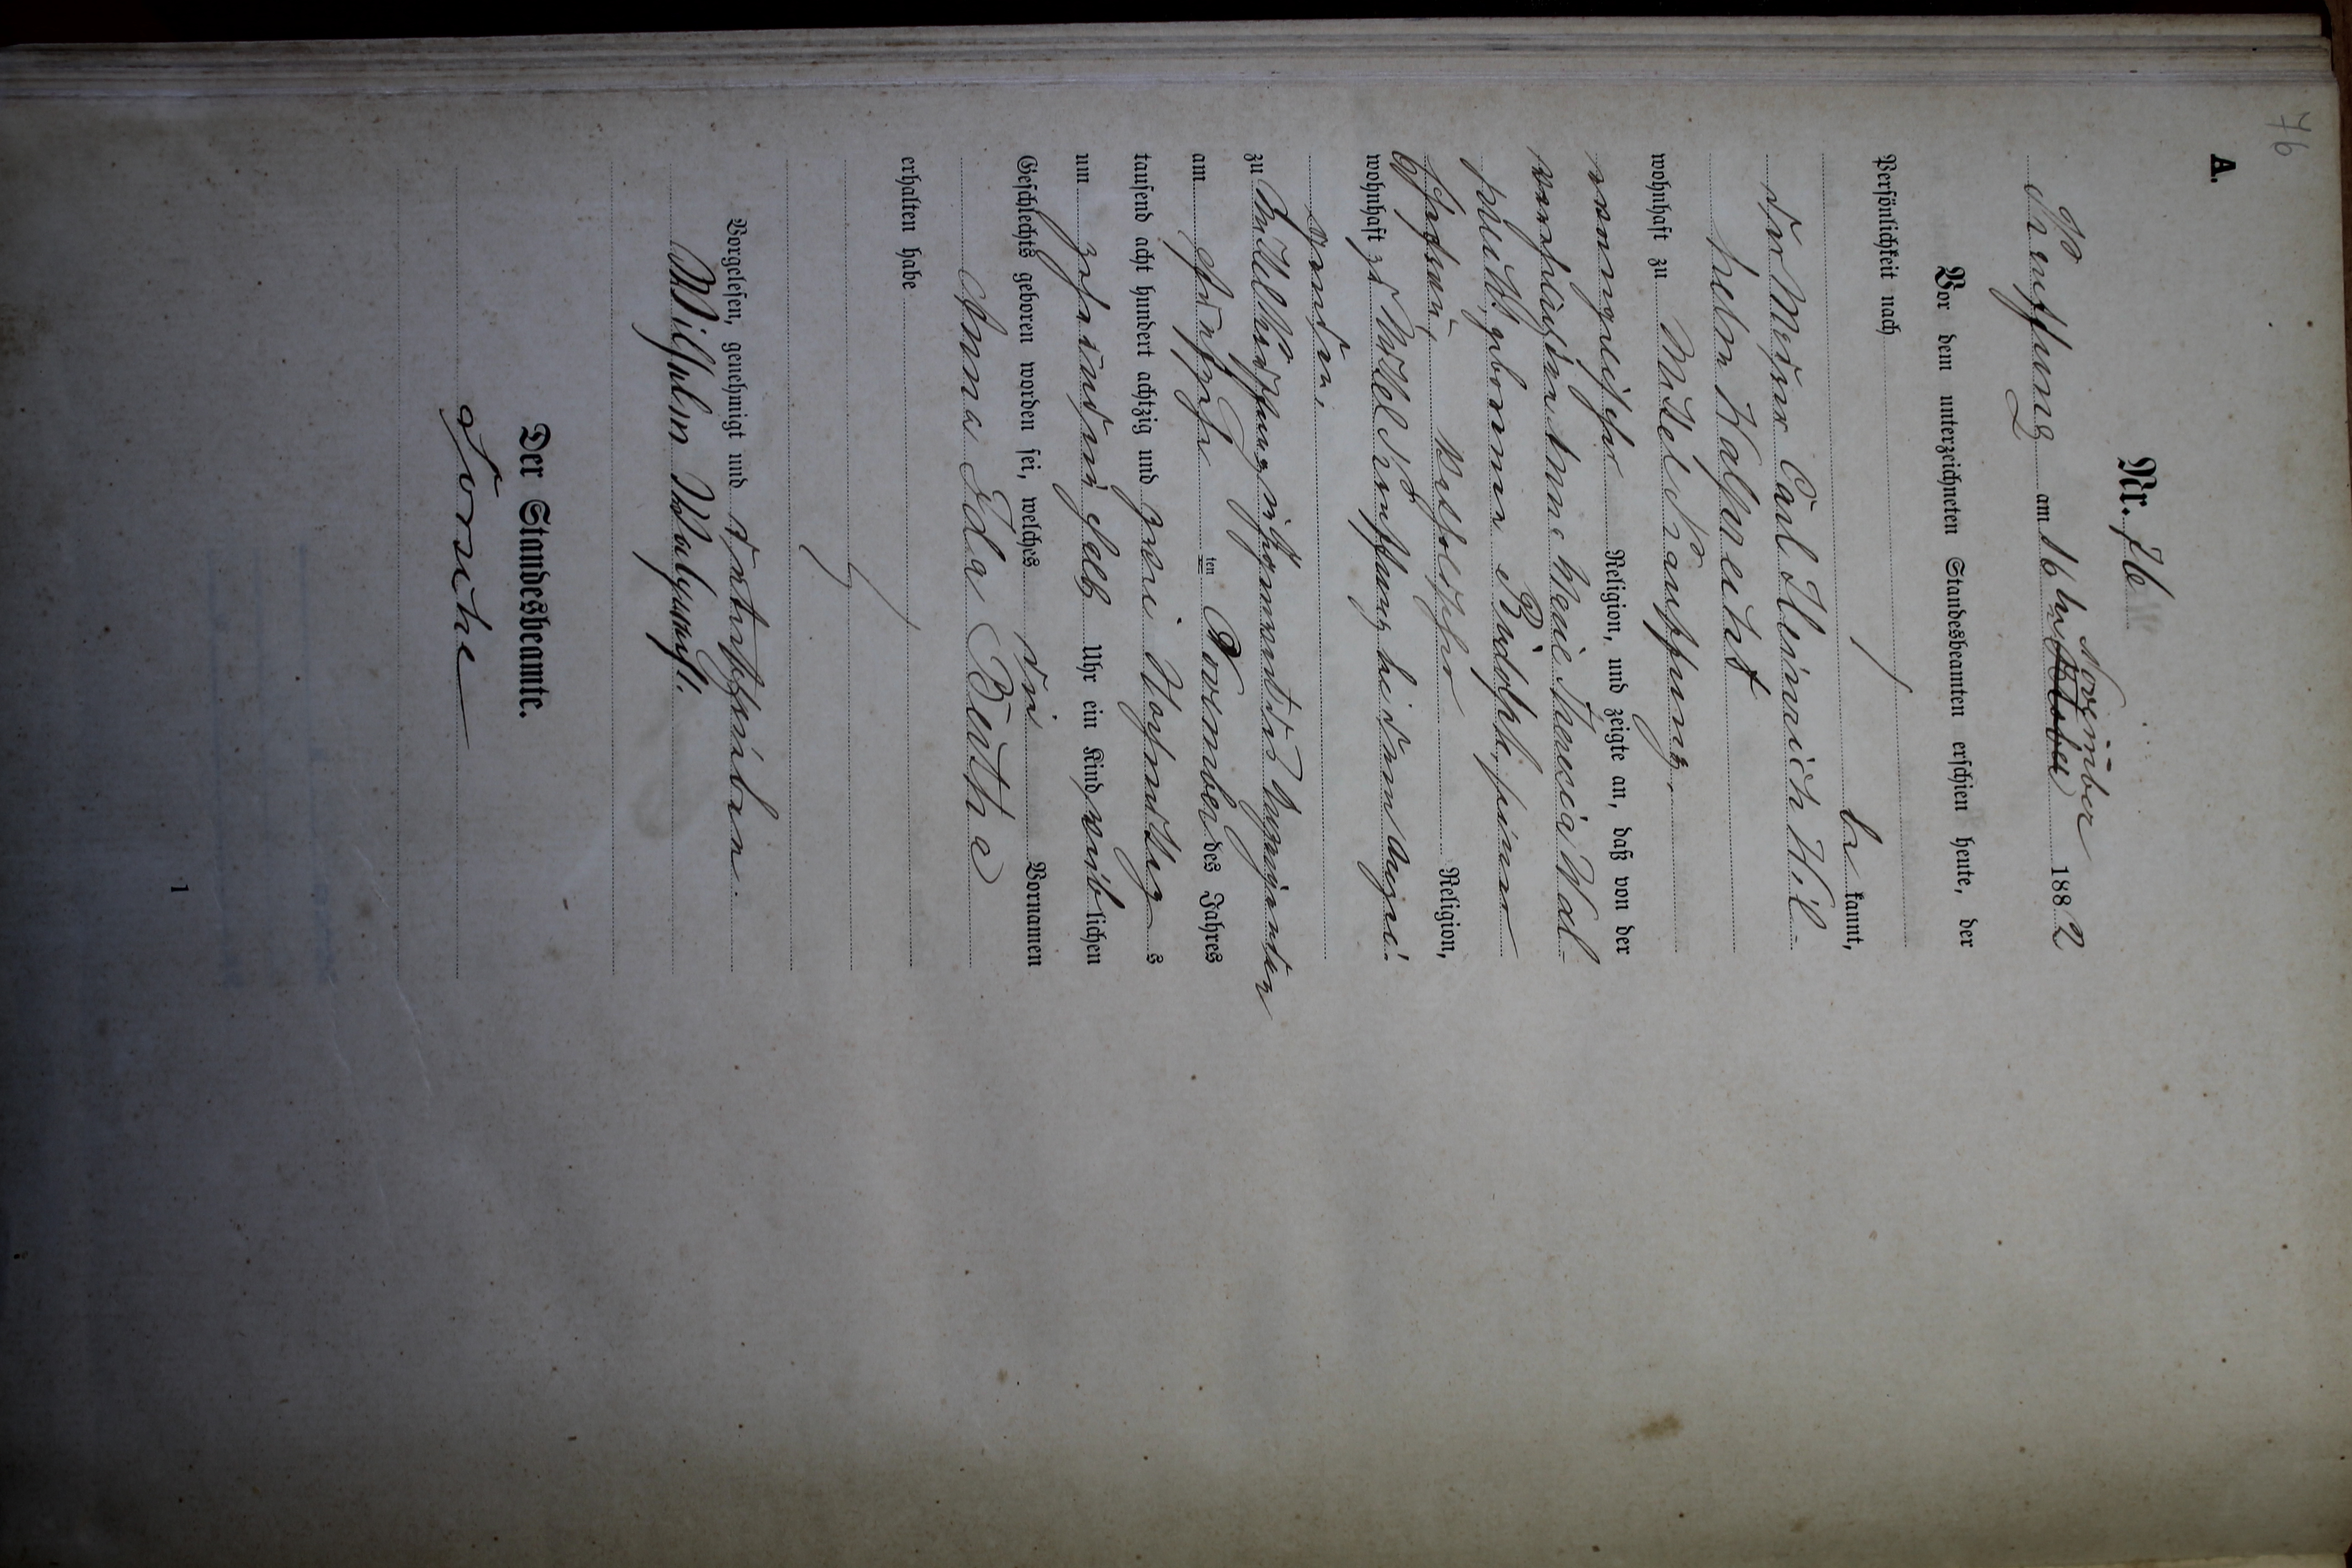 76
A.
Nr. 76
Kauffung am 16ten November
Oktober 1882
Vor dem unterzeichneten Standesbeamten erschien heute, der
Persönlichkeit nach
be kannt,
der Maurer Carl Heinrich Wil-
helm Walprecht
wohnhaft zu Mittel Kauffung,
evangelischer Religion, und zeigte an, daß von der
verehelichten Anna Marie Theresia Wal-
precht, geborenen Rudolph, seiner
Ehefrau, katholischer Religion,
wohnhaft zu Mittel Kauffung bei dem Anzei-
genden,
zu Mittel Kauffung in Gegenwart des Anzeigenden
am fünfzehn ten November des Jahres
tausend acht hundert achtzig und zwei Vormittag s
um zehn einhalb Uhr ein Kind weib lichen
Geschlechts geboren worden sei, welches die Vornamen
Anna Ida Beatha
erhalten habe.
Vorgelesen, genehmigt und unterschrieben.
Wilhelm Walprecht.
Der Standesbeamte.
1